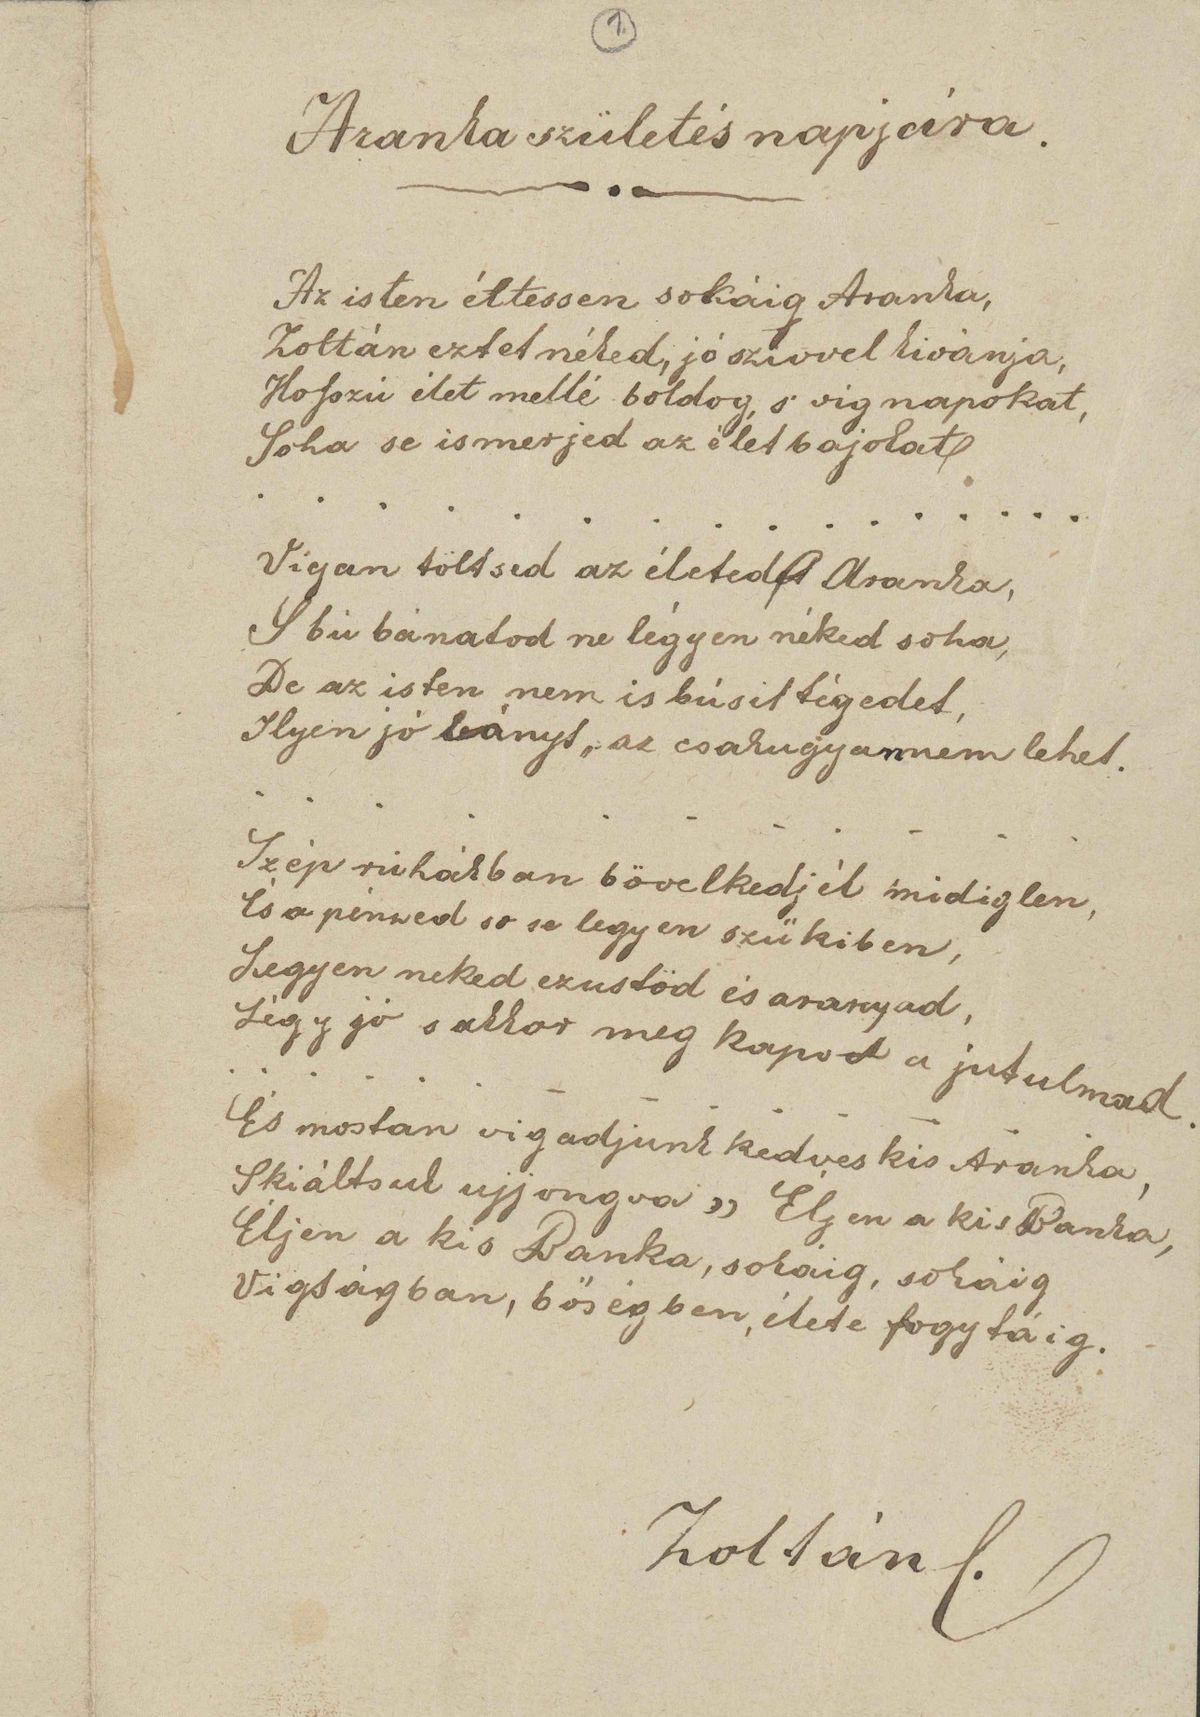 1.
Aranka születés napjára.
Az isten éltessen sokáig Aranka,
Zoltán eztet néked, jó szivvel kivánja,
Hosszú élet mellé boldog, s vig napokat,
Soha se ismerjed az élet bajokat
Vígan töltsed az életed Aranka,
S bú bánatod ne légyen néked soha,
De az isten nem is búsit tégedet,
Ilyen jó lányt, az csakugyan nem lehet.
Szép ruhákban bövelkedjél midiglen,
És a pénzed so se legyen szükiben,
Legyen neked ezustöd és aranyad,
Légy jó s akkor meg kapod a jutulmad.
És mostan vigadjunk kedves kis Aranka,
Skiáltsuk ujjongva „ Éljen a kis Banka,
Éljen a kis Banka, sokáig, sokáig
Vigságban, bőségben, élete fogytáig.
Zoltán